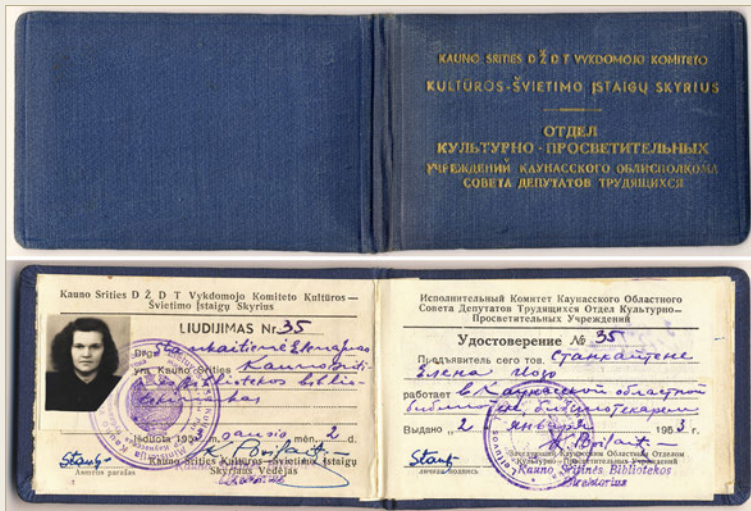 KAUNO SRITIES D Ž D T VYKDOMOJO KOMITETO
KULTŪROS-ŠVIETIMO ĮSTAIGŲ SKYRIUS
ОТДЕЛ
КУЛЬТУРНО-ПРОСВЕТИТЕЛЬНЫХ
УЧРЕЖДЕНИЙ КАУНАССКОГО ОБЛИСПОЛКОМА
СОВЕТА ДЕПУТАТОВ ТРУДЯЩИХСЯ
Kauno Srities D Ž D T Vykdomojo Komiteto Kultūros—
Švietimo Įstaigų Skyrius
LIUDIJIMAS Nr 35
Drg. Stankaitienė Elena
yra Kauno Srities Kauno sriti-
nės bibliotekos biblio-
tekininkas
Išduota 1953 m. sausio mėn. 2 d.
Kauno Srities Kultūros-Švietimo Įstaigų
Asmens parašas
Skyriaus Vedėjas
Исполнительный Комитет Каунасского Областного
Совета Депутатов Трудящихся Отдел Культурно—
Просветительных Учреждений
Удостоверение № 35
Предъявитель сего тов. Станкайтене
Элена Йозо
работает в Каунасской областной
библиотеке, библиотекарем
Выдано „2 января 1953 г.
Заведующий Каунасским Областным Отделом
Культурно-Просветительных Учреждений
личная подпись
Kauno Sritinės Bibliotekos
Direktorius